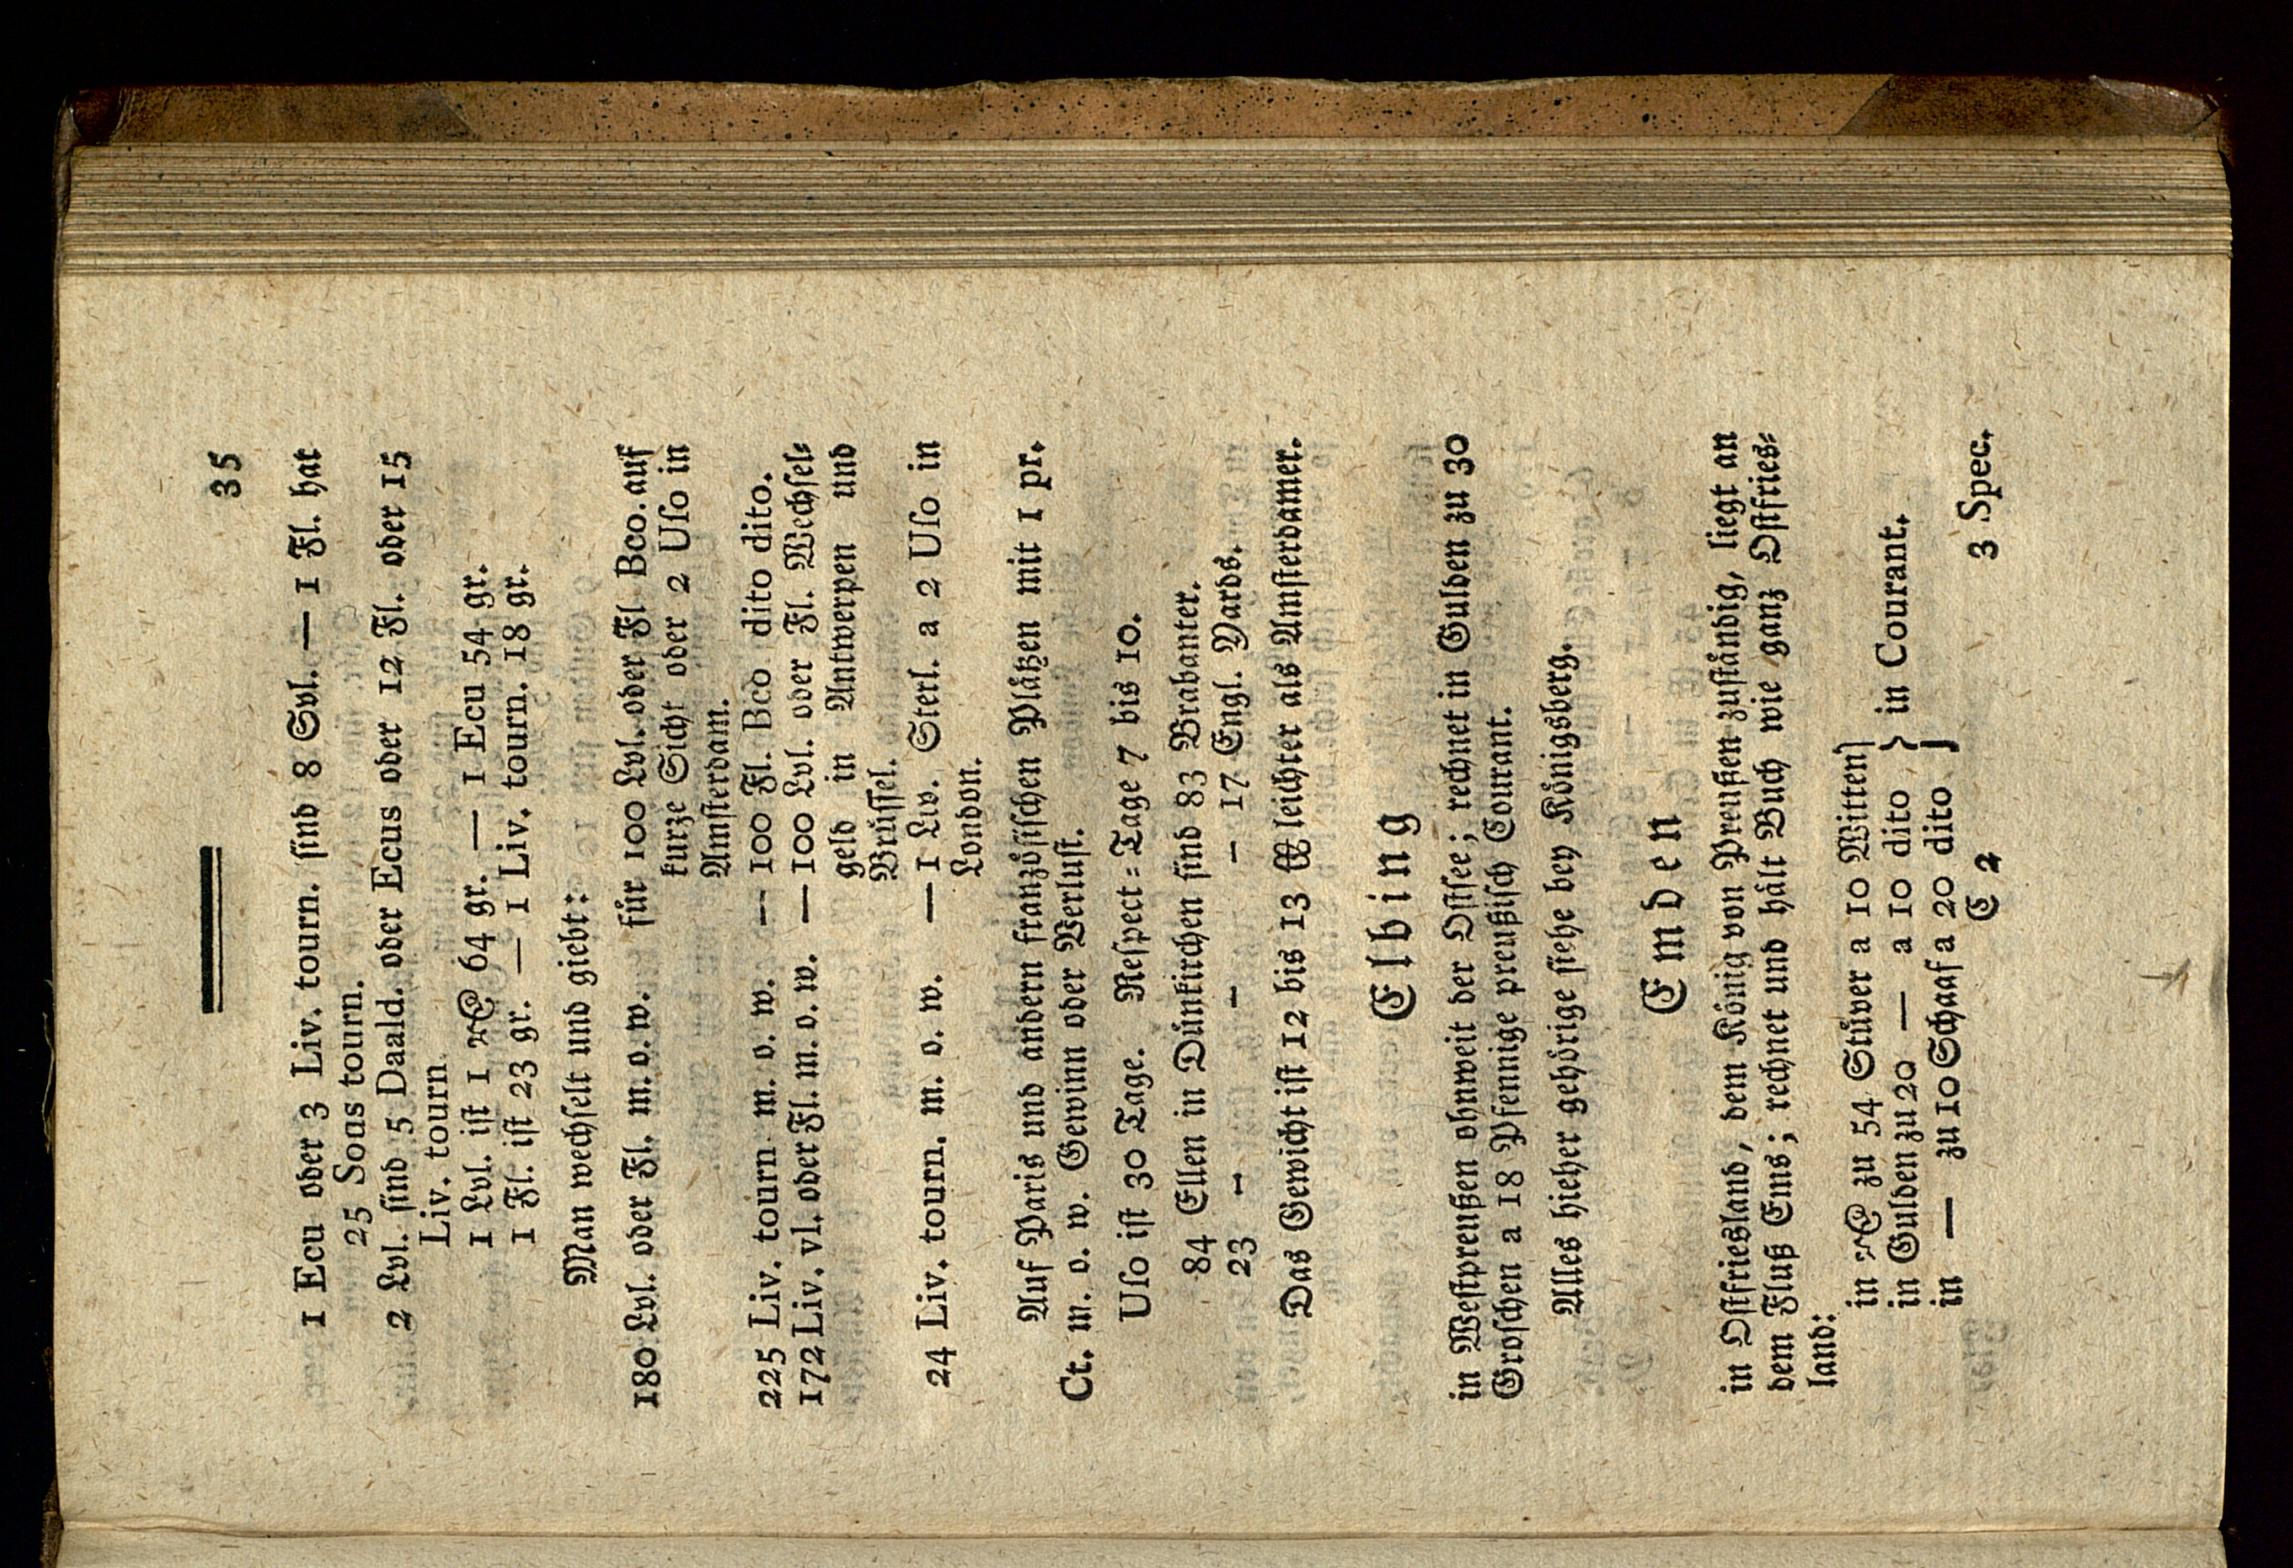 35
1 Ecu oder 3 Liv. tourn. sind 8 Svl. — 1 Fl. hat
25 Sous tourn.
2 Lvl. sind 5 Daald. oder Ecus oder 12 Fl. oder 15
Liv. tourn
1 Lvl. ist 1 64 gr. — 1 Ecu 54 gr.
1 Fl. ist 23 gr. — 1 Liv. tourn. 18 gr.
Man wechselt und giebt:
180 Lvl. oder Fl. m. o. w. für 100 Lvl. oder Fl Bco. auf
kurze Sicht oder 2 Uso in
Amsterdam.
225 Liv. tourn m. o. w. — 100 Fl. Bco dito dito.
172 Liv. vl. oder Fl. m. o. w. — 100 Lvl. oder Fl. Wechsel⸗
geld in Antwerpen und
Brüssel.
24 Liv. tourn. m. o. w. — 1 Liv. Sterl. a 2 Uso in
London.
Auf Paris und andern französischen Plätzen mit 1 pr.
Ct. m. o. w. Gewinn oder Verlust.
Uso ist 30 Tage. Respect⸗Tage 7 bis 10.
84 Ellen in Dünkirchen sind 83 Brabanter.
23 – – – 17 Engl. Yards.
Das Gewicht ist 12 bis 13 ℔ leichter als Amsterdamer.
Elbing
in Westpreußen ohnweit der Ostsee; rechnet in Gulden zu 30
Groschen a 18 Pfennige preußisch Courant.
Alles hieher gehörige siehe bey Königsberg.
Emden
in Ostfriesland, dem König von Preußen zuständig, liegt an
dem Fluß Ems; rechnet und hält Buch wie ganz Ostfries⸗
land:
in zu 54 Stüver a 10 Witten
in Gulden zu 20 — a 10 dito } in Courant.
in — zu 10 Schaaf a 20 dito
C 2 3 Spec.